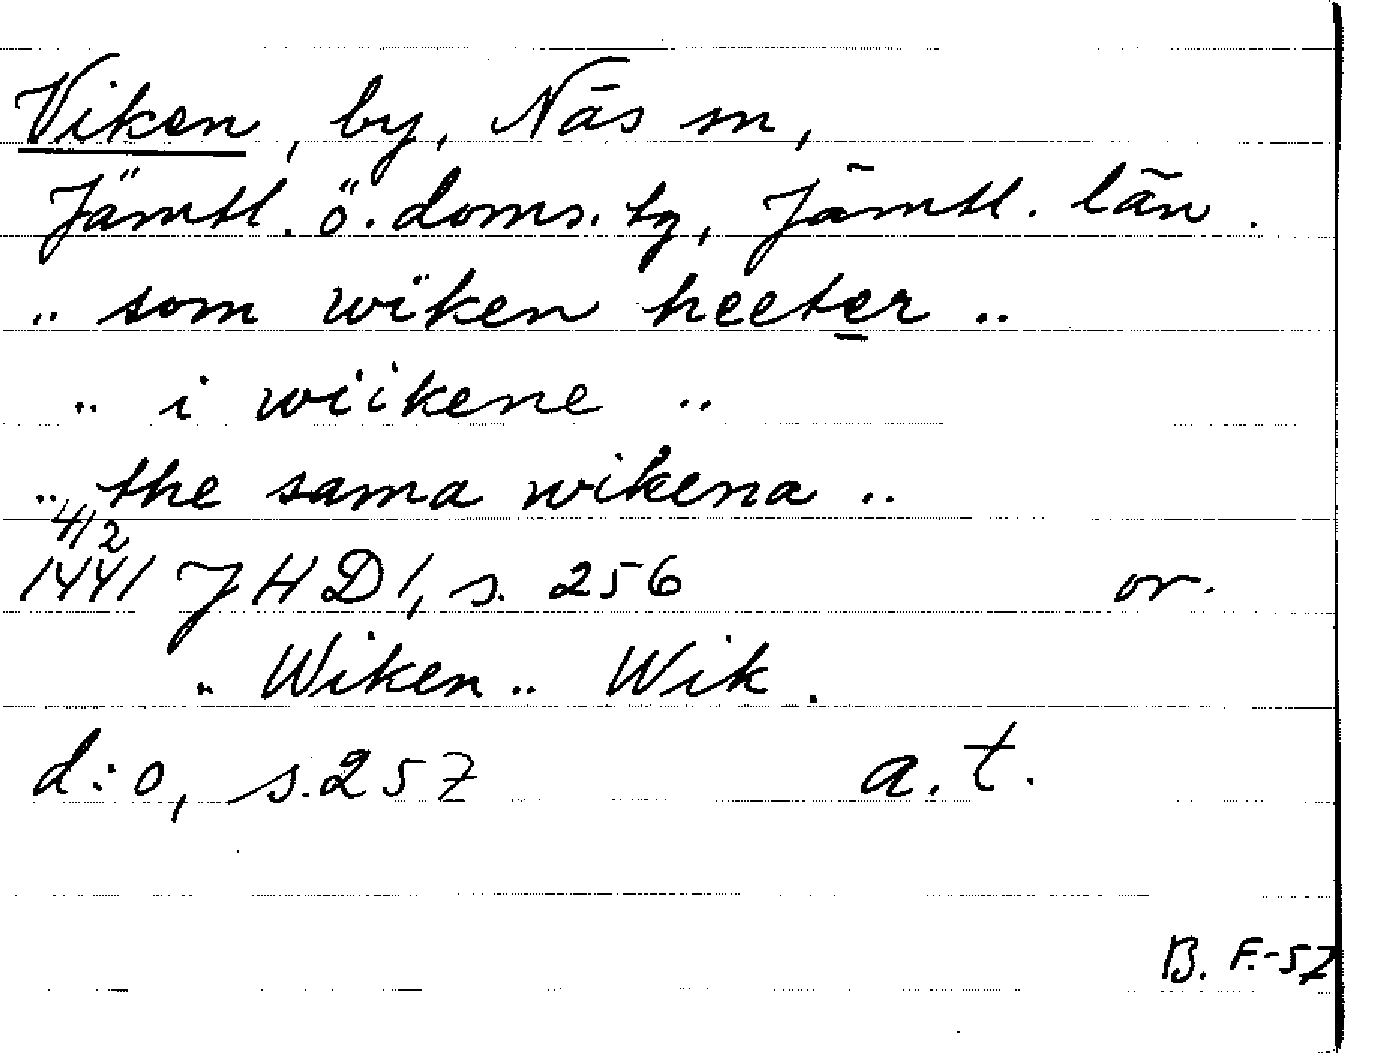 Viken, by, Näs sn,
Jämtl. ö. doms. tg, Jämtl. län.
.. som wïken heeter ..
.. i wiikene ..
.. the sama wikena ..
4/2
1441 JHD 1, s. 256 or.
.. Wiken .. Wik.
d:o, s. 257 a. t.
B. F.-57